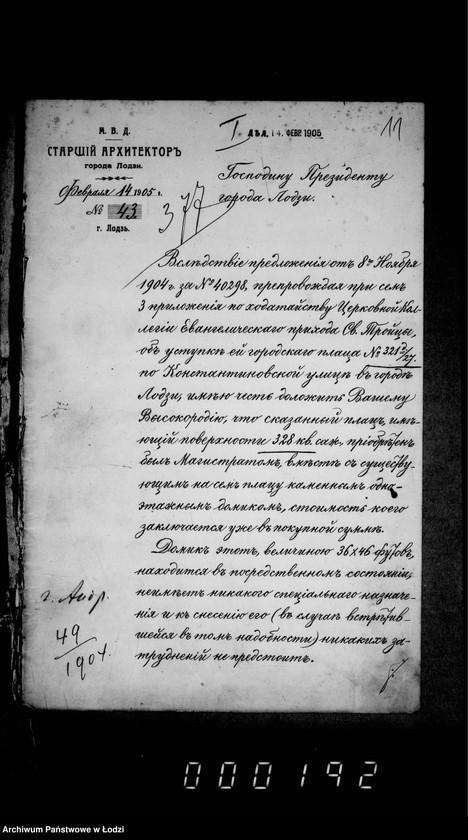 М. В. Д.
СТАРШІЙ АРХИТЕКТОРЪ
города Лодзи.
Февраля 14 1905 г.
№ 43
г. Лодзь.
I
14 ФЕВР. 1905
11
377
Господину Президенту
города Лодзи.
Вслѣдствіе предложенія отъ 8го Ноября
1904 г. за № 40298, препровождая при семъ
3 приложенія по ходатайству Церковной Кол-
легіи Евангелическаго прихода Св. Тройцы,
объ уступкѣ ей городскаго плаца № 321
по Константиновской улицѣ въ городѣ
Лодзи, имѣю честь доложить Вашему
Высокородію, что сказанный плацъ, имѣ-
ющій поверхности 328 кв. саж., пріобрѣтенъ
былъ Магистратомъ, вмѣстѣ съ существу-
ющимъ на семъ плацу каменнымъ одно-
этажнымъ домикомъ, стоимость коего
заключается уже въ покупной суммѣ.
Домикъ этотъ, величиною 36 х 46 футовъ,
находится въ посредственномъ состояніи,
неимѣетъ никакого спеціальнаго назначе-
нія и къ снесенію его (въ случаѣ встрѣтив-
шейся въ томъ надобности) никакихъ за-
трудненій не предстоитъ.
49
1904.
000192
Archiwum Państwowe w Łodzi